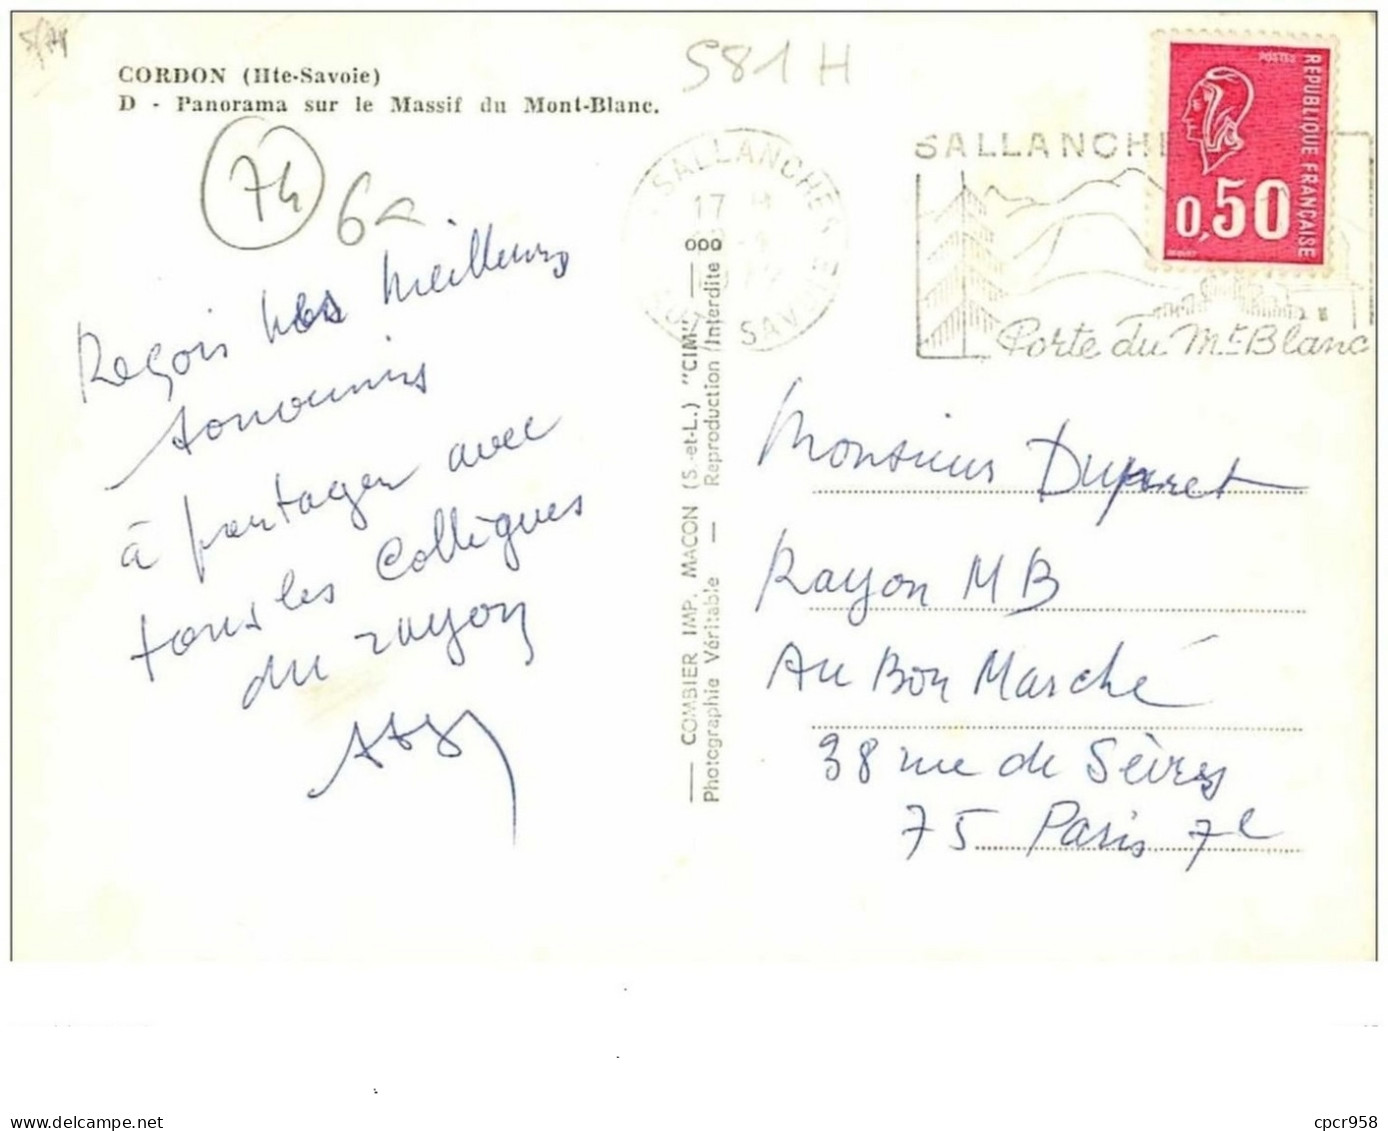 5/74
S81H
CORDON (Hte-Savoie)
D - Panorama sur le Massif du Mont-Blanc.
74
6a
Reçois mes meilleurs
à partager avec
tous les Collègues
du rayon
COMBIER IMP. MACON (S.-et-L.) "CIM"
Photographie Véritable — Reproduction Interdite
SALLANCHES
17 H
HTE SAVOIE
SALLANCHE
Porte du Mt Blanc
POSTES
REPUBLIQUE FRANÇAISE
0,50
Monsieur Duperret
Rayon MB
Au Bon Marché
38 rue de Sèvres
75 Paris 7e
cpcr958
delcampe.net